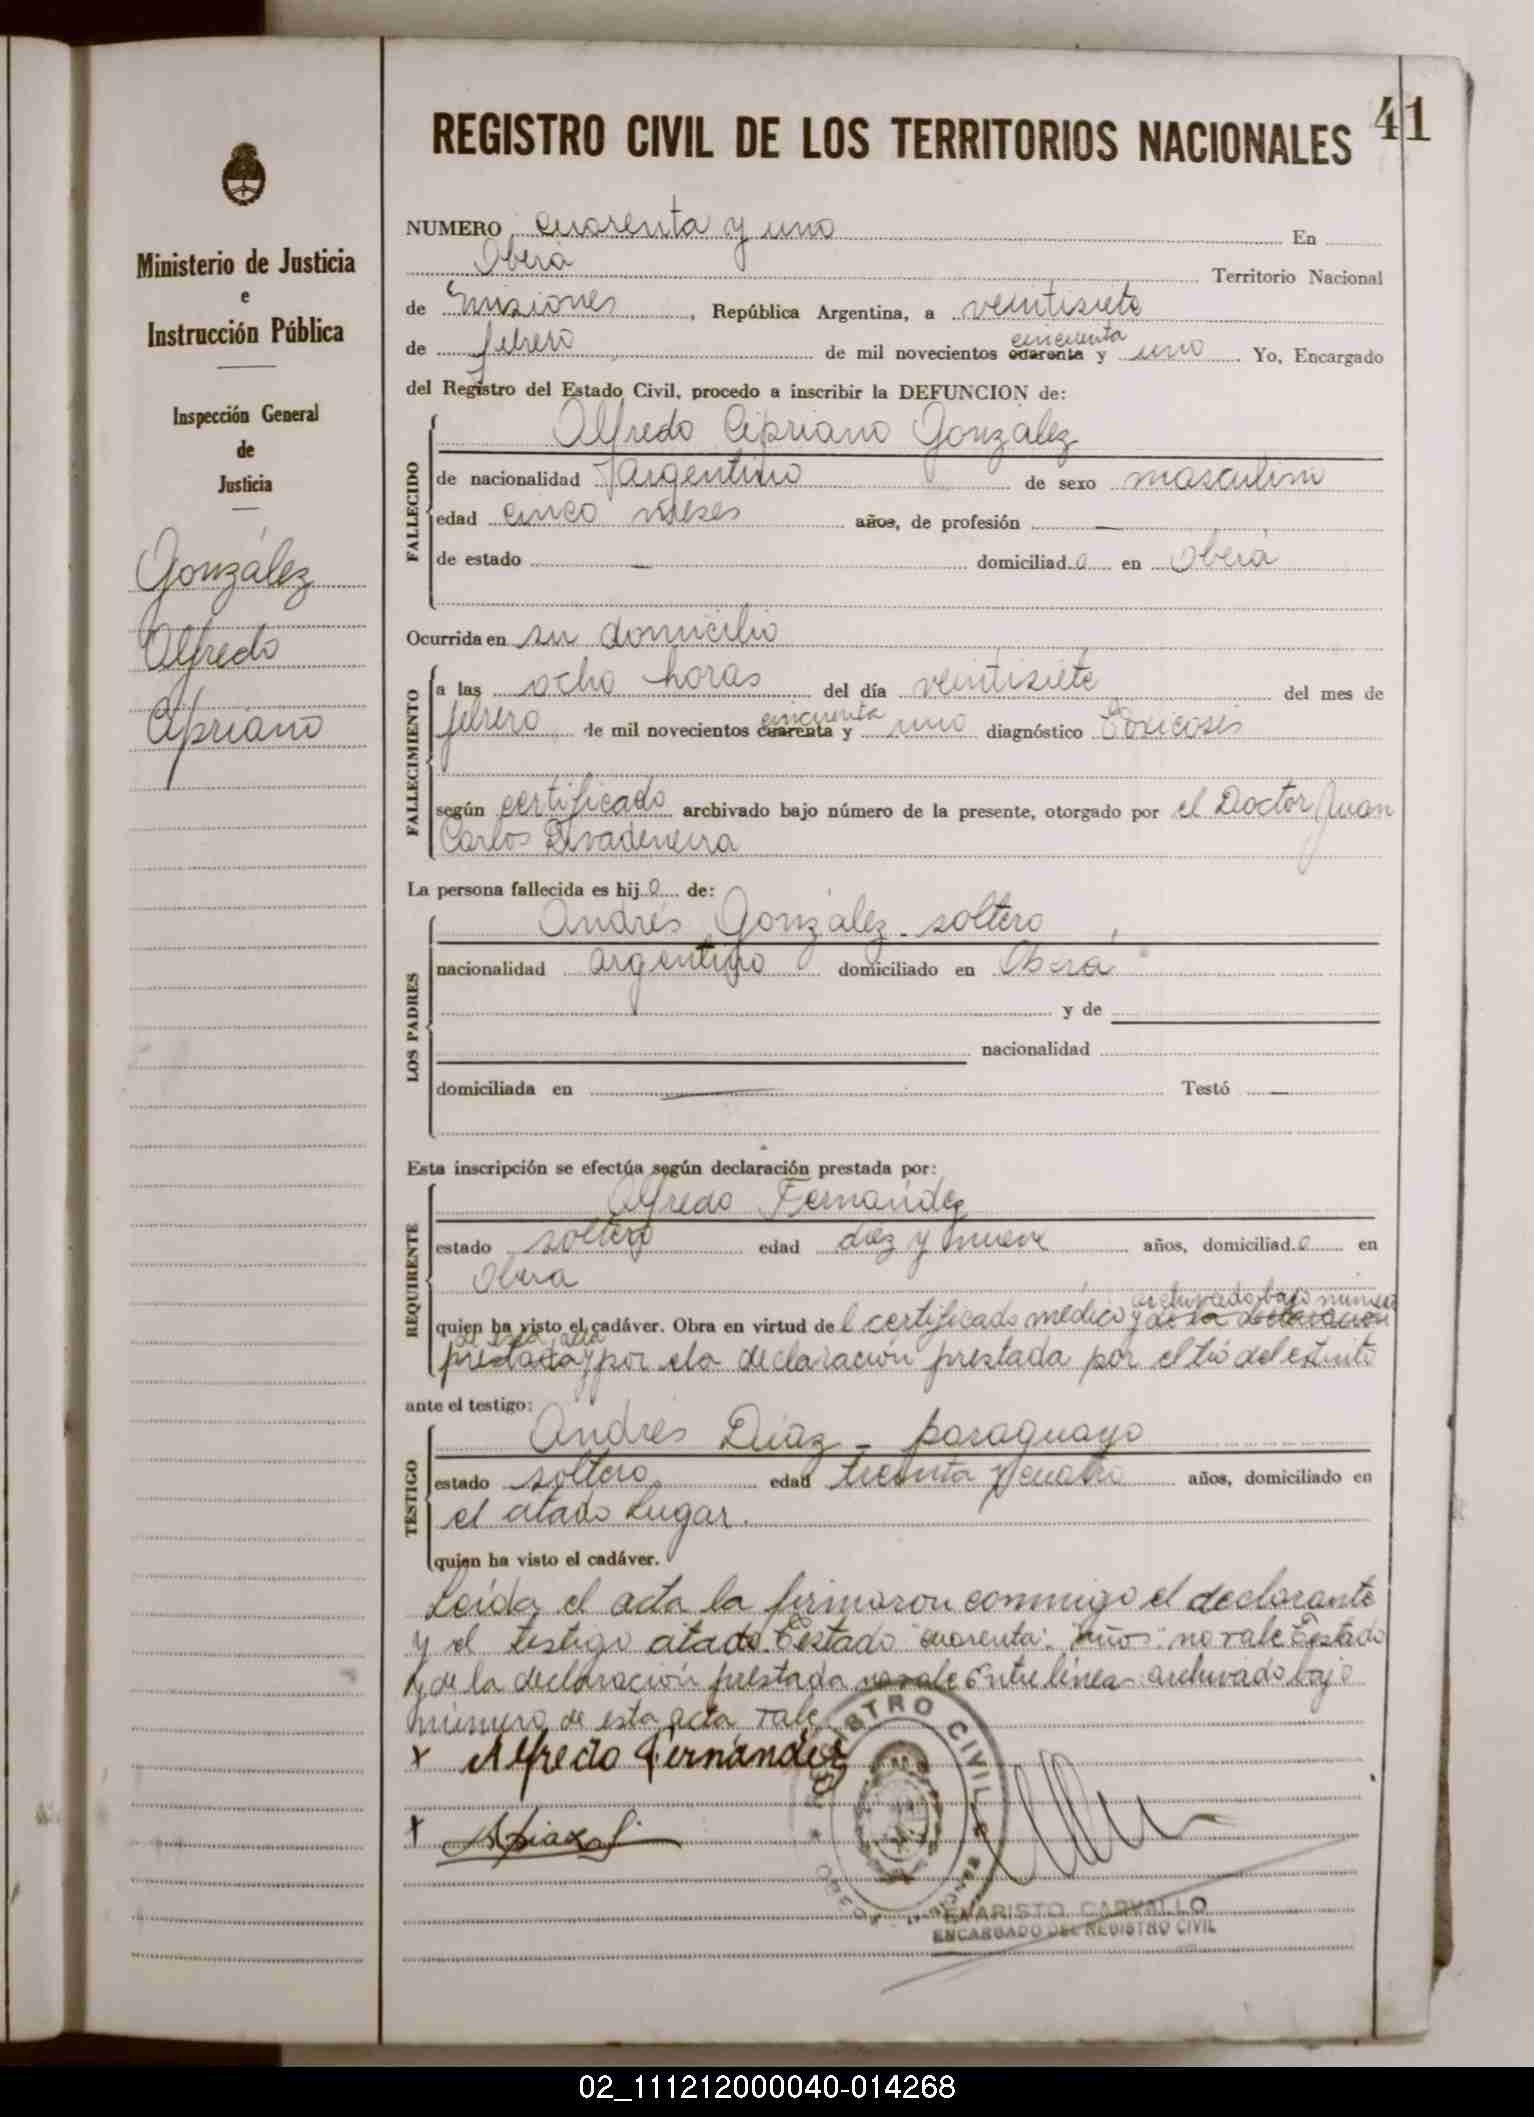 41
REGISTRO CIVIL DE LOS TERRITORIOS NACIONALES
Ministerio de Justicia
e
Instrucción Pública
Inspección General
de
Justicia
González
Alfredo
Cipriano
NUMERO cuarenta y uno En
Oberá Territorio Nacional
de Misiones, República Argentina, a veintisiete
de febrero de mil novecientos cuarenta cincuenta y uno. Yo, Encargado
del Registro del Estado Civil, procedo a inscribir la DEFUNCION de:
FALLECIDO
Alfredo Cipriano González
de nacionalidad Argentino de sexo masculino
edad cinco meses años, de profesión —
de estado — domiciliado en Oberá
Ocurrida en su domicilio
FALLECIMIENTO
a las ocho horas del día veintisiete del mes de
febrero de mil novecientos cuarenta cincuenta y uno diagnóstico Toxicosis
según certificado archivado bajo número de la presente, otorgado por el Doctor Juan
Carlos Rivadeneira
La persona fallecida es hijo de:
LOS PADRES
Andrés González - soltero
nacionalidad argentino domiciliado en Oberá
y de
nacionalidad
domiciliada en — Testó —
Esta inscripción se efectúa según declaración prestada por:
REQUIRENTE
Alfredo Fernández
estado soltero edad diez y nueve años, domiciliado en
Oberá
archivado bajo número
quien ha visto el cadáver. Obra en virtud del certificado médico y de la declaración
de esta acta
prestada y por la declaración prestada por el tío del extinto
ante el testigo:
TESTIGO
Andrés Díaz - paraguayo
estado soltero edad treinta y cuatro años, domiciliado en
el citado lugar.
quien ha visto el cadáver.
Leída el acta la firmaron conmigo el declarante
y el testigo citado. Testado "cuarenta": "años": no vale Testado
y de la declaración prestada no vale Entre líneas archivado bajo
número de esta acta vale
x Alfredo Fernández
x
REGISTRO CIVIL
EVARISTO CARVALLO
ENCARGADO DEL REGISTRO CIVIL
02_111212000040-014268